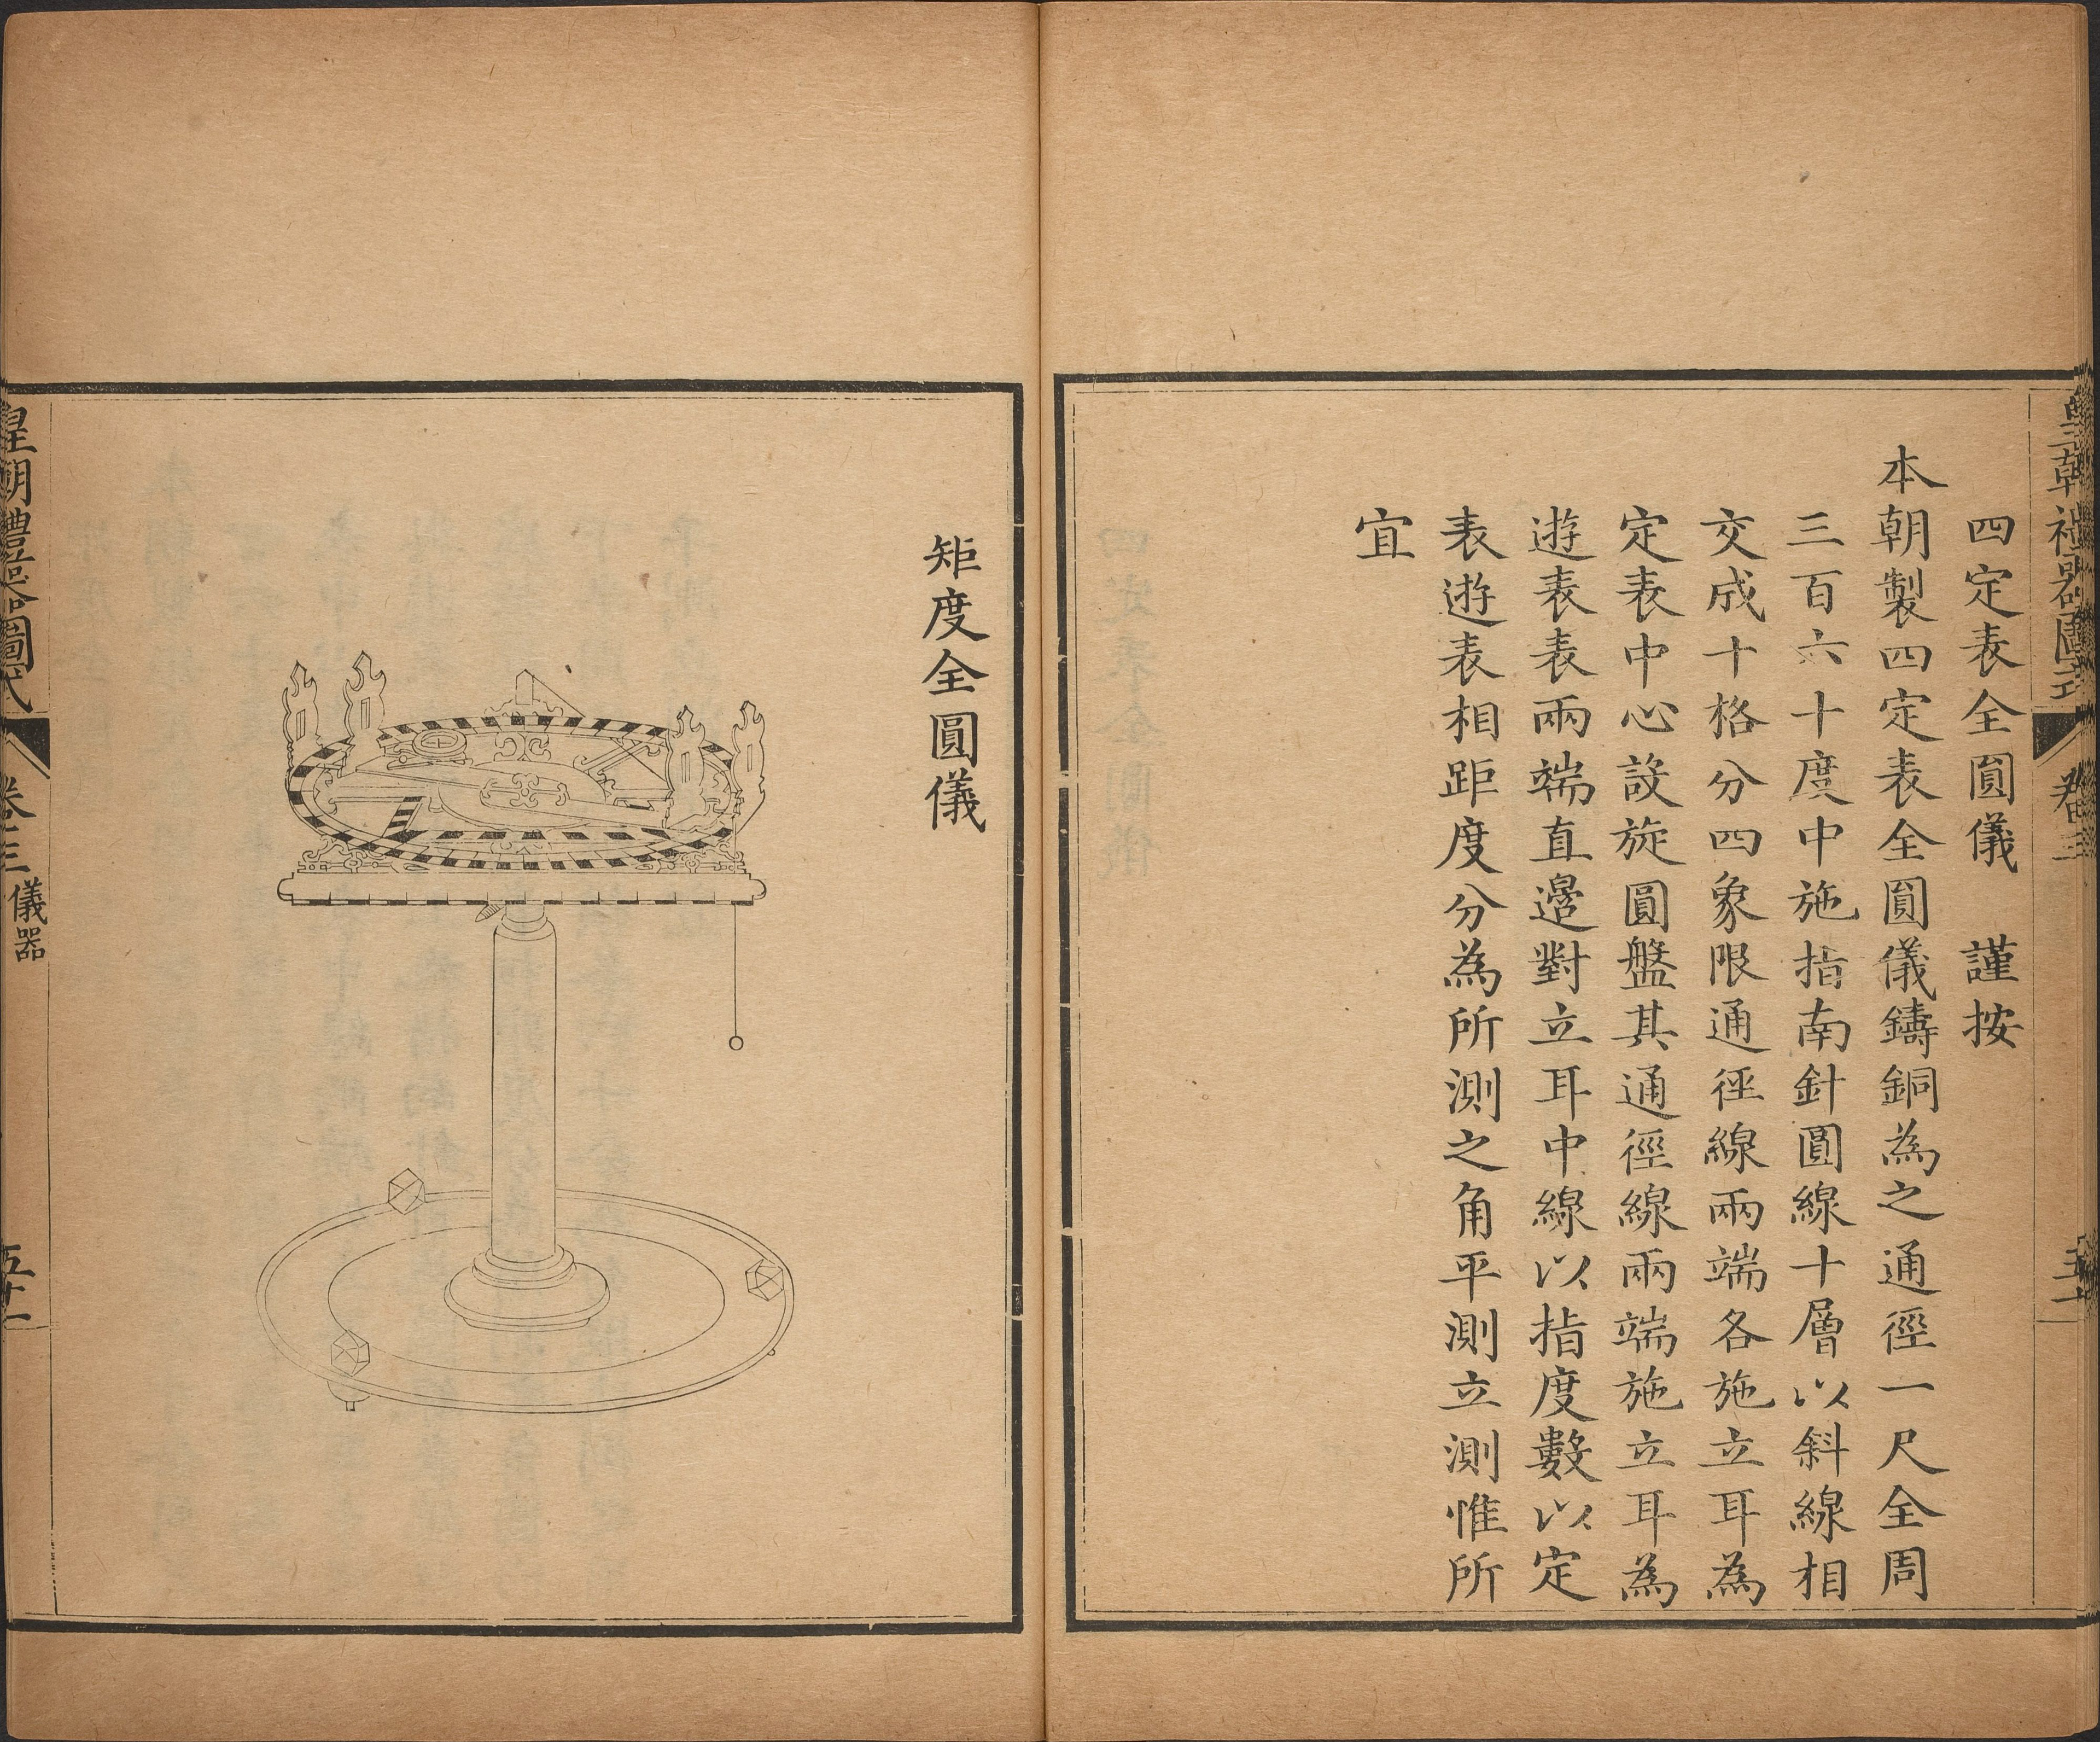 皇朝禮器圖式
卷三
五十一
四定表全圓儀 謹按
本朝製四定表全圓儀鑄銅為之通徑一尺全周
三百六十度中施指南針圓線十層以斜線相
交成十格分四象限通徑線兩端各施立耳為
定表中心設旋圓盤其通徑線兩端施立耳為
遊表表兩端直邊對立耳中線以指度數以定
表遊表相距度分為所測之角平測立測惟所
宜
矩度全圓儀
皇朝禮器圖式
卷三
儀器